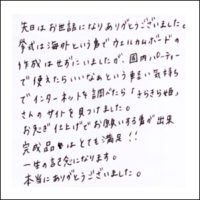 先日はお世話になりありがとうございました。
挙式は海外という事でウェルカムボードの
作成はせずにいましたが、国内パーティー
で使えたらいいなぁという軽い気持ち
でインターネットを調べたら「きらきら姫」
さんのサイトを見つけました。
お急ぎ仕上げでお願いする事が出来
完成品もとても満足!!
一生の記念になります。
本当にありがとうございました。